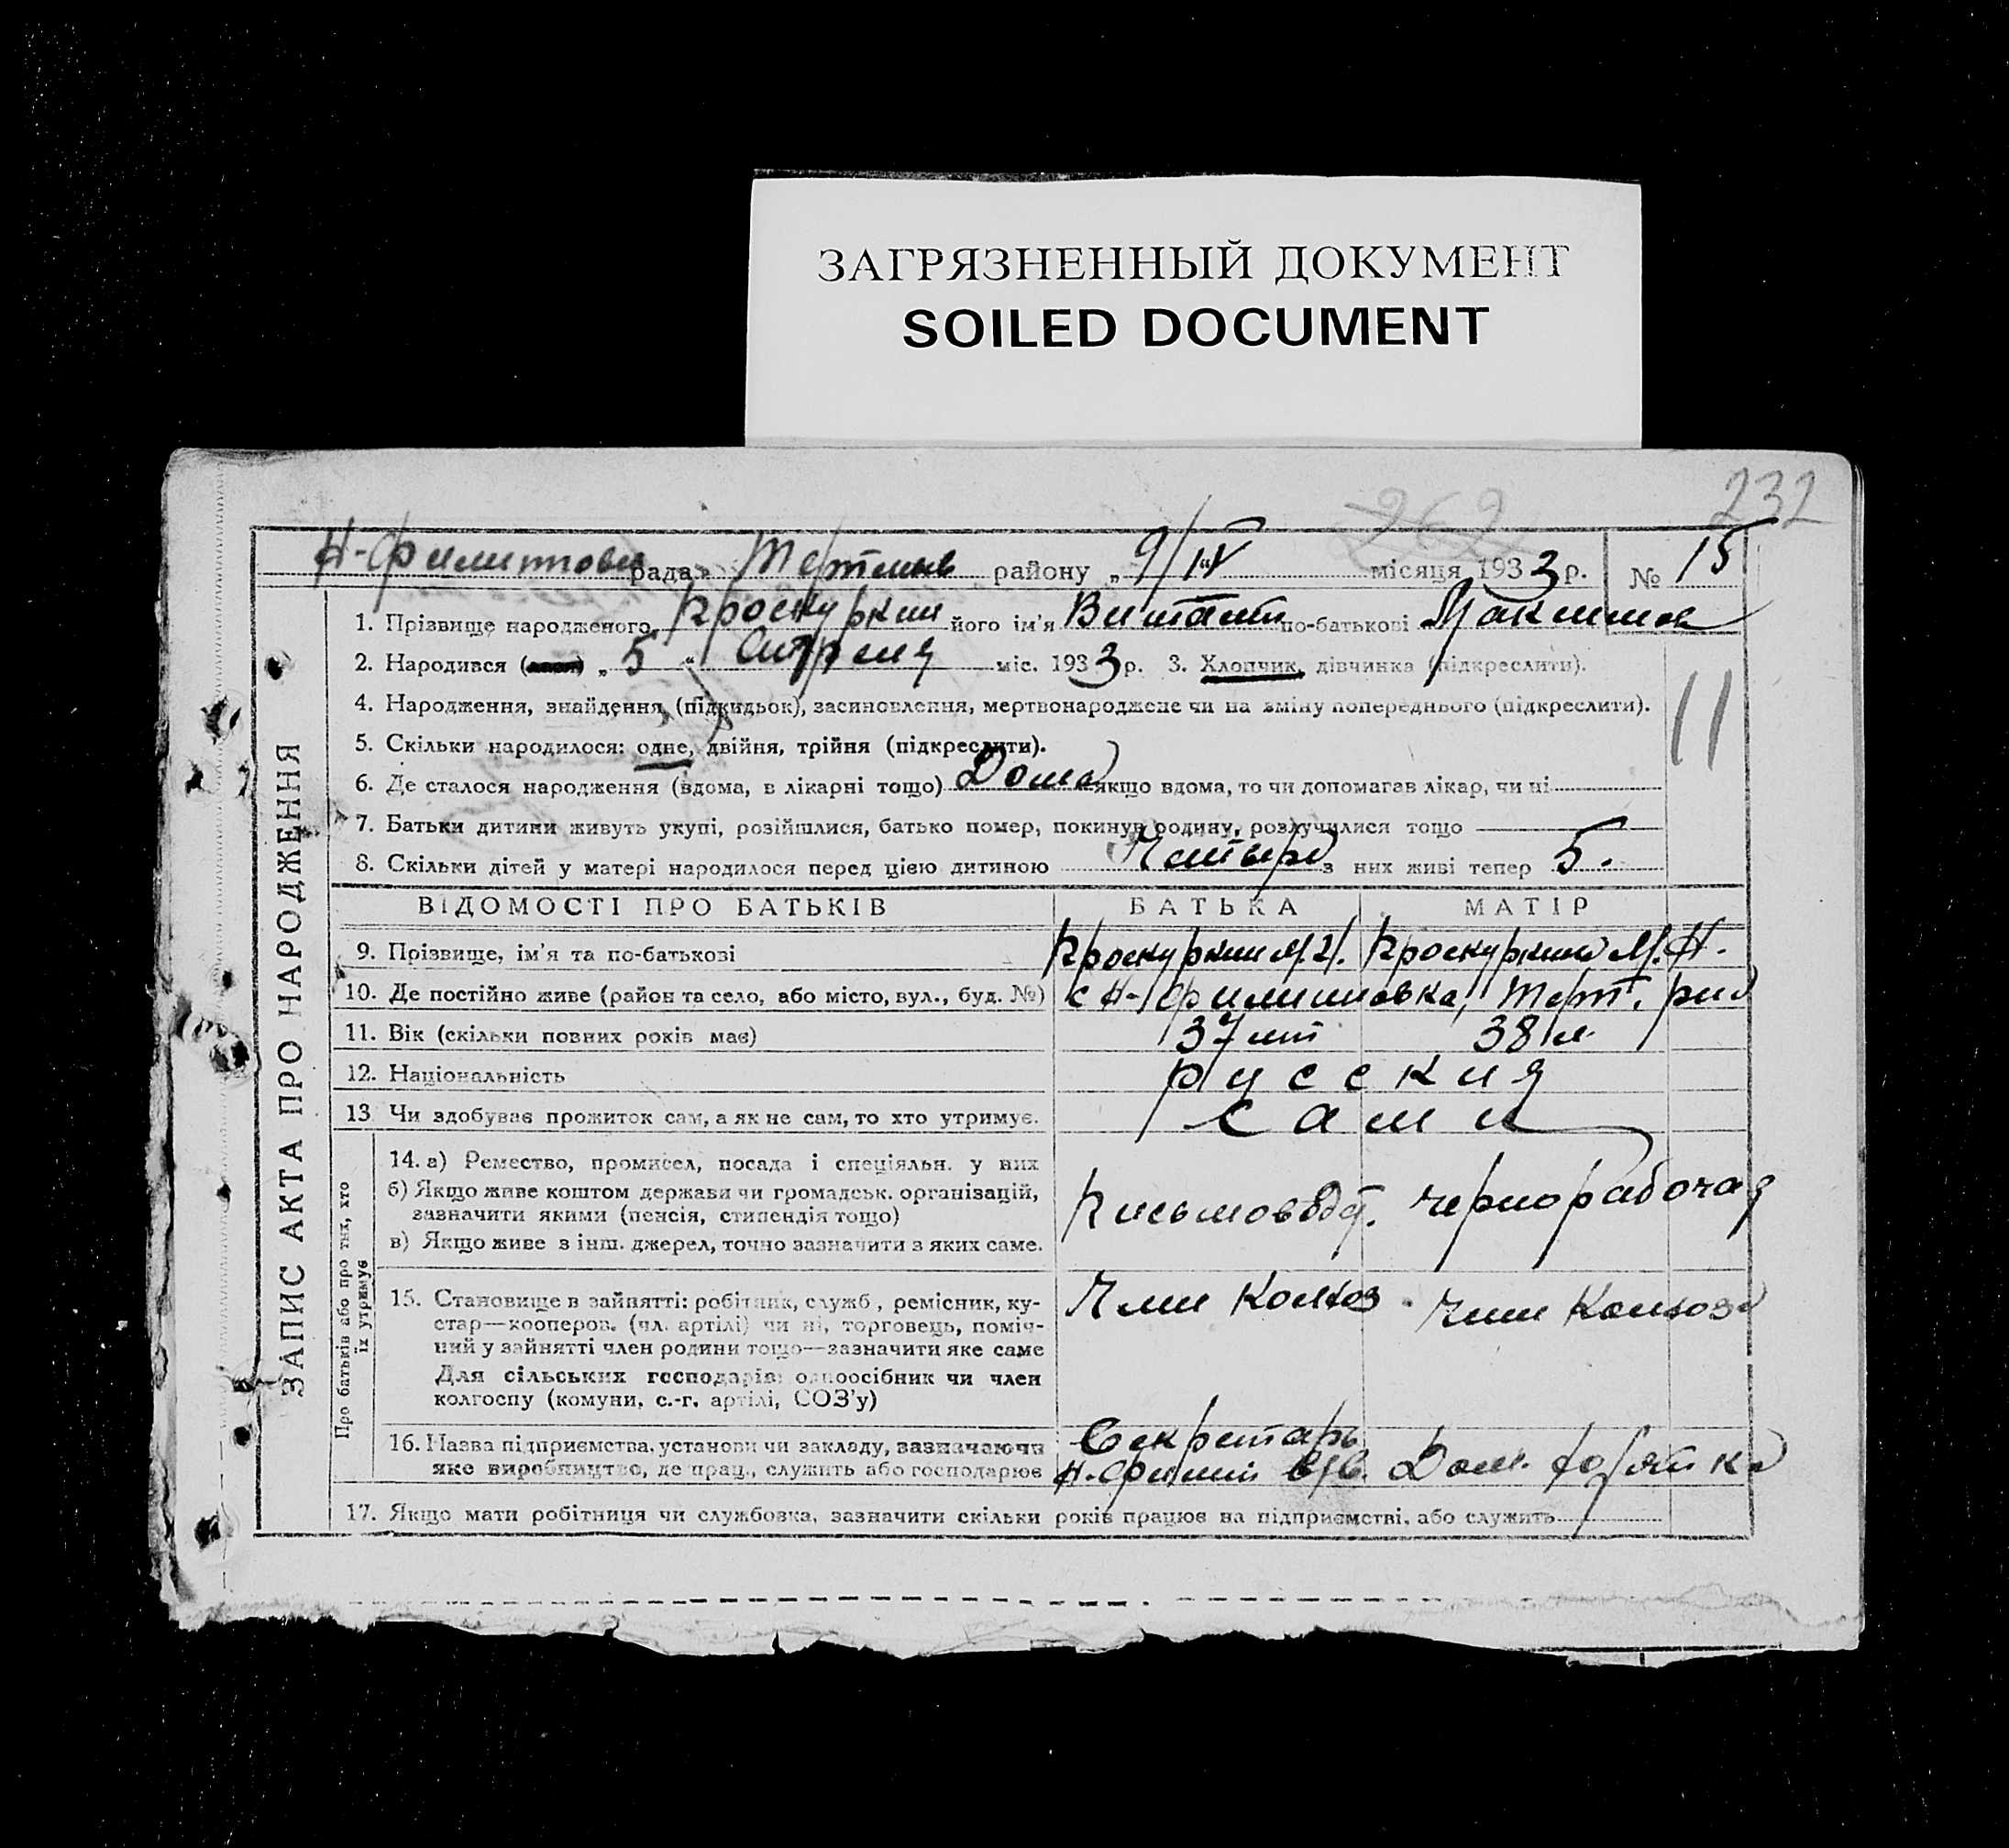 ЗАГРЯЗНЕННЫЙ ДОКУМЕНТ
SOILED DOCUMENT
232
262
Н-Филипповк рада Терпенья району „ 9/IV “ місяця 1933 р. № 15
1. Прізвище народженого Проскурнин його ім'я Виталий по-батькові Максимов
2. Народився „ 5 “ Апреля міс. 1933 р. 3. Хлопчик, дівчинка (підкреслити).
4. Народження, знайдення, (підкидьок), засиновлення, мертвонароджене чи на зміну попереднього (підкреслити).
11
5. Скільки народилося: одне, двійня, трійня (підкреслити).
6. Де сталося народження (вдома, в лікарні тощо) Дома якщо вдома, то чи допомагав лікар, чи ні
7. Батьки дитини живуть укупі, розійшлися, батько помер, покинув родину, розлучилися тощо
8. Скільки дітей у матері народилося перед цією дитиною Четыре з них живі тепер 5.
ВІДОМОСТІ ПРО БАТЬКІВ БАТЬКА МАТІР
9. Прізвище, ім'я та по-батькові Проскурнин М. Проскурнина М. Н.
10. Де постійно живе (район та село, або місто, вул., буд. №) с Н-Филипповка, Терп. р-на
11. Вік (скільки повних років має) 37 лет 38 л.
12. Національність русския
13 Чи здобуває прожиток сам, а як не сам, то хто утримує. сами
14. а) Ремество, промисел, посада і спеціяльн. у них
б) Якщо живе коштом держави чи громадськ. організацій,
зазначити якими (пенсія, стипендія тощо)
в) Якщо живе з інш. джерел, точно зазначити з яких саме.
Письмовод. чернорабочая
15. Становище в зайнятті: робітник, служб., ремісник, ку-
стар—кооперов. (чл. артілі) чи ні, торговець, поміч-
ний у зайнятті член родини тощо—зазначити яке саме
Для сільських господарів: одноосібник чи член
колгоспу (комуни, с.-г. артілі, СОЗ'у)
Член Колхоз. Член Колхоза
16. Назва підприємства, установи чи закладу, зазначаючи
яке виробництво, де прац., служить або господарює
Секретарь
Н.-Филип Дом.
17. Якщо мати робітниця чи службовка, зазначити скільки років працює на підприємстві, або служить
ЗАПИС АКТА ПРО НАРОДЖЕННЯ
Про батьків або про тих, хто
їх утримує